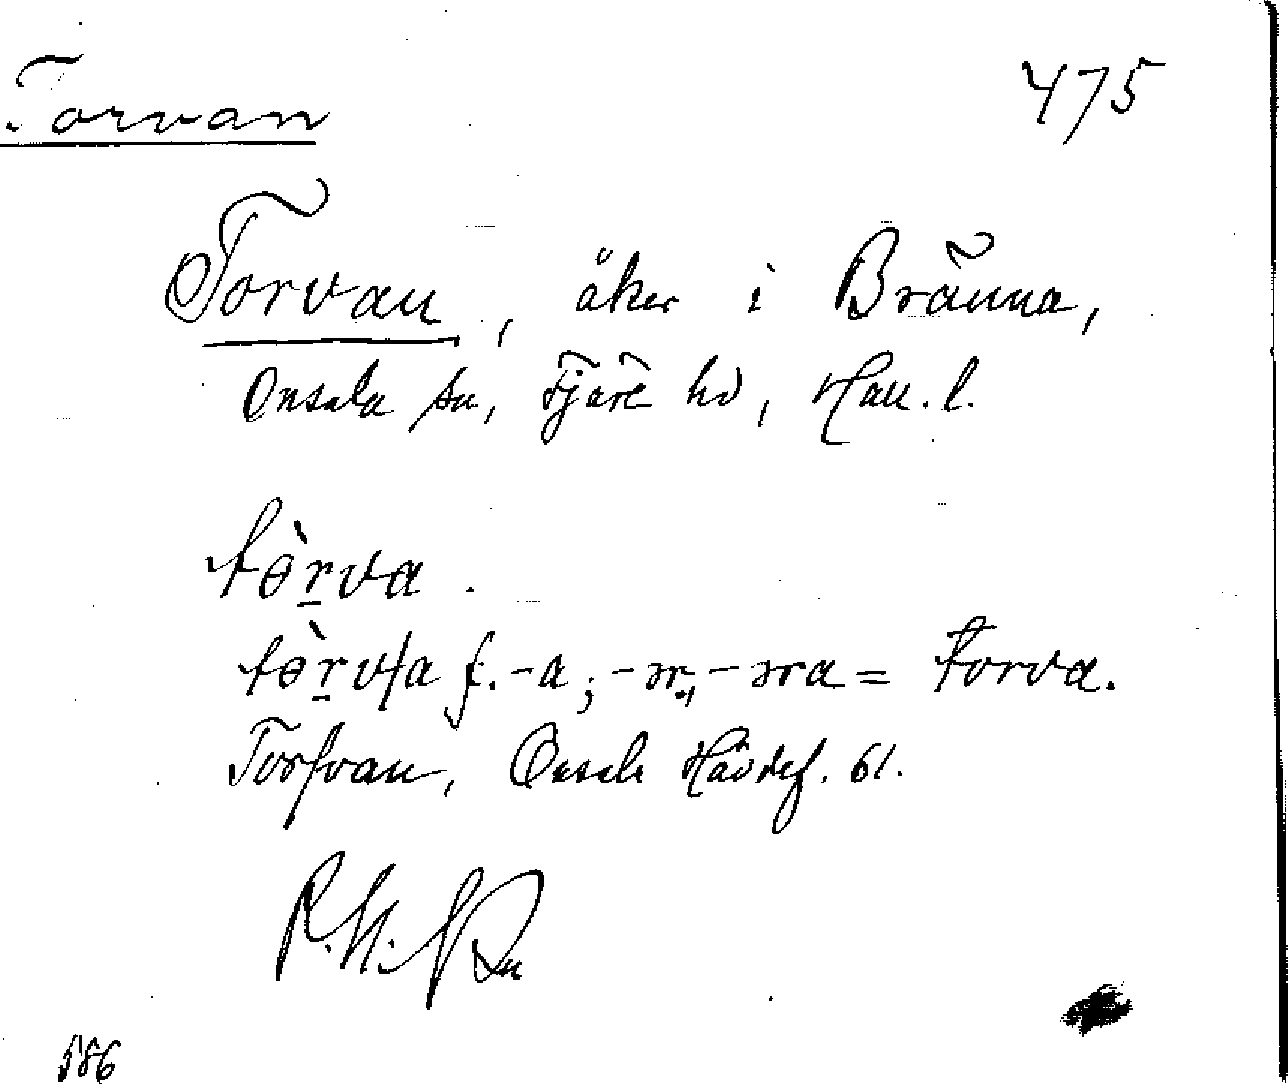 Torvan
475
Torvan, åker i Bränna,
Onsala sn, Fjäre hd, Hall. l.
tèr̠va.
tèr̠v/a f. -a; -ər, -əra = torva.
Torfvan, Onsala 61.
586